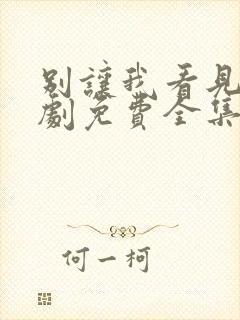 别讓我看見
劇免費全集
何一柯